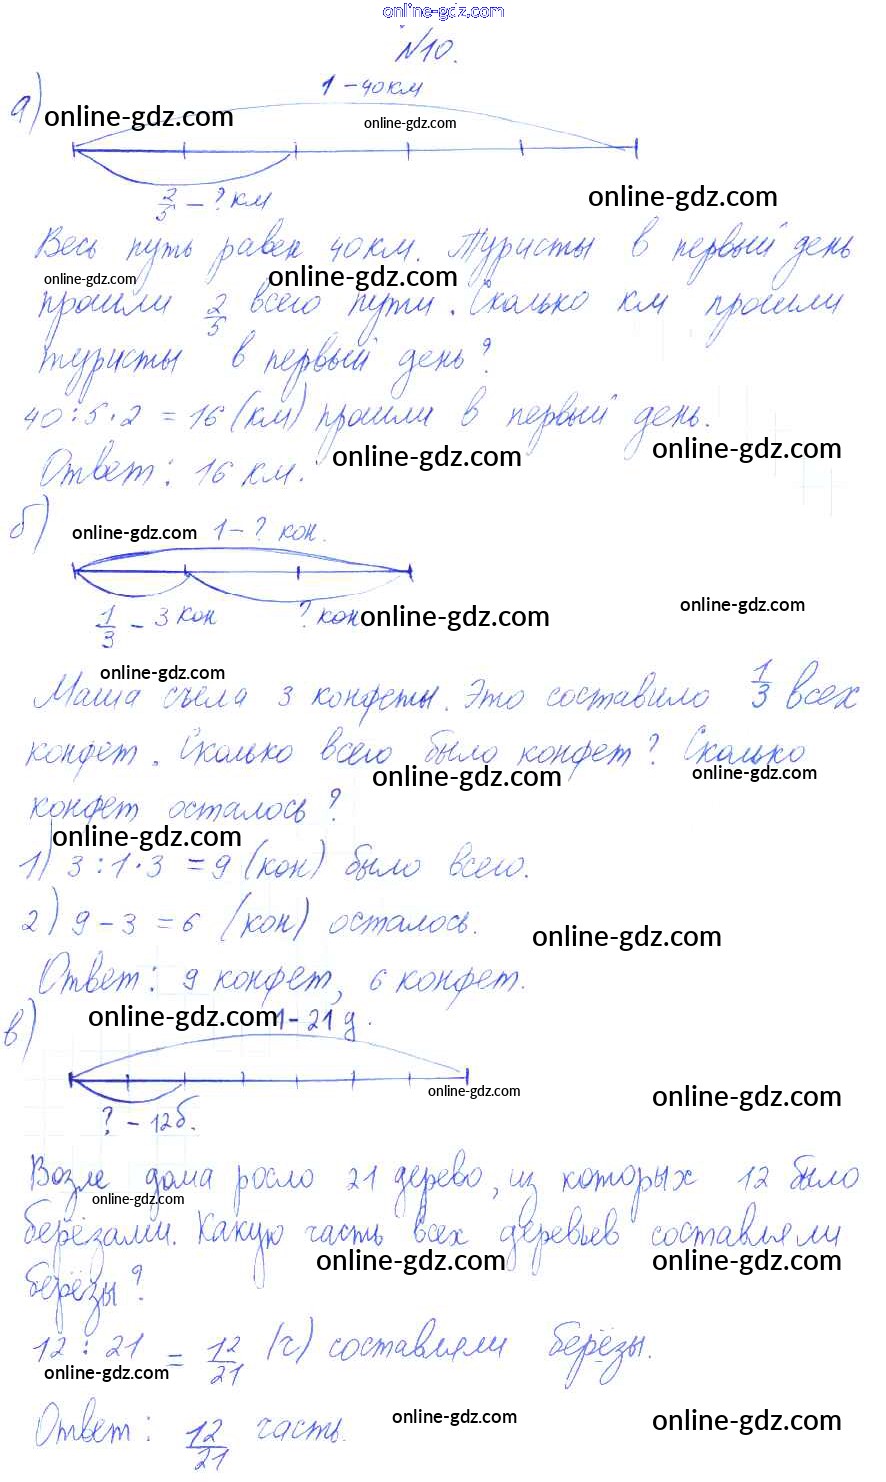 online-gdz.com
№10.
1 – 40 км
а) online-gdz.com
online-gdz.com
2/5 – ? км
online-gdz.com
Весь путь равен 40 км. Туристы в первый день
online-gdz.com online-gdz.com
прошли 2/5 всего пути. Сколько км прошли
туристы в первый день?
40 : 5 · 2 = 16 (км) прошли в первый день.
online-gdz.com online-gdz.com
Ответ: 16 км.
б) online-gdz.com 1 – ? кон.
1/3 – 3 кон ? кон online-gdz.com
online-gdz.com
online-gdz.com
Маша съела 3 конфеты. Это составило 1/3 всех
конфет. Сколько всего было конфет? Сколько
online-gdz.com online-gdz.com
конфет осталось?
online-gdz.com
1) 3 : 1 · 3 = 9 (кон) было всего.
2) 9 – 3 = 6 (кон) осталось.
online-gdz.com
Ответ: 9 конфет, 6 конфет.
в) online-gdz.com 1 – 21 д.
online-gdz.com
online-gdz.com
? – 12 б.
Возле дома росло 21 дерево, из которых 12 было
online-gdz.com
берёзами. Какую часть всех деревьев составляли
online-gdz.com online-gdz.com
берёзы?
12 : 21 = 12/21 (ч) составляли берёзы.
online-gdz.com
Ответ: 12/21 часть.
online-gdz.com online-gdz.com